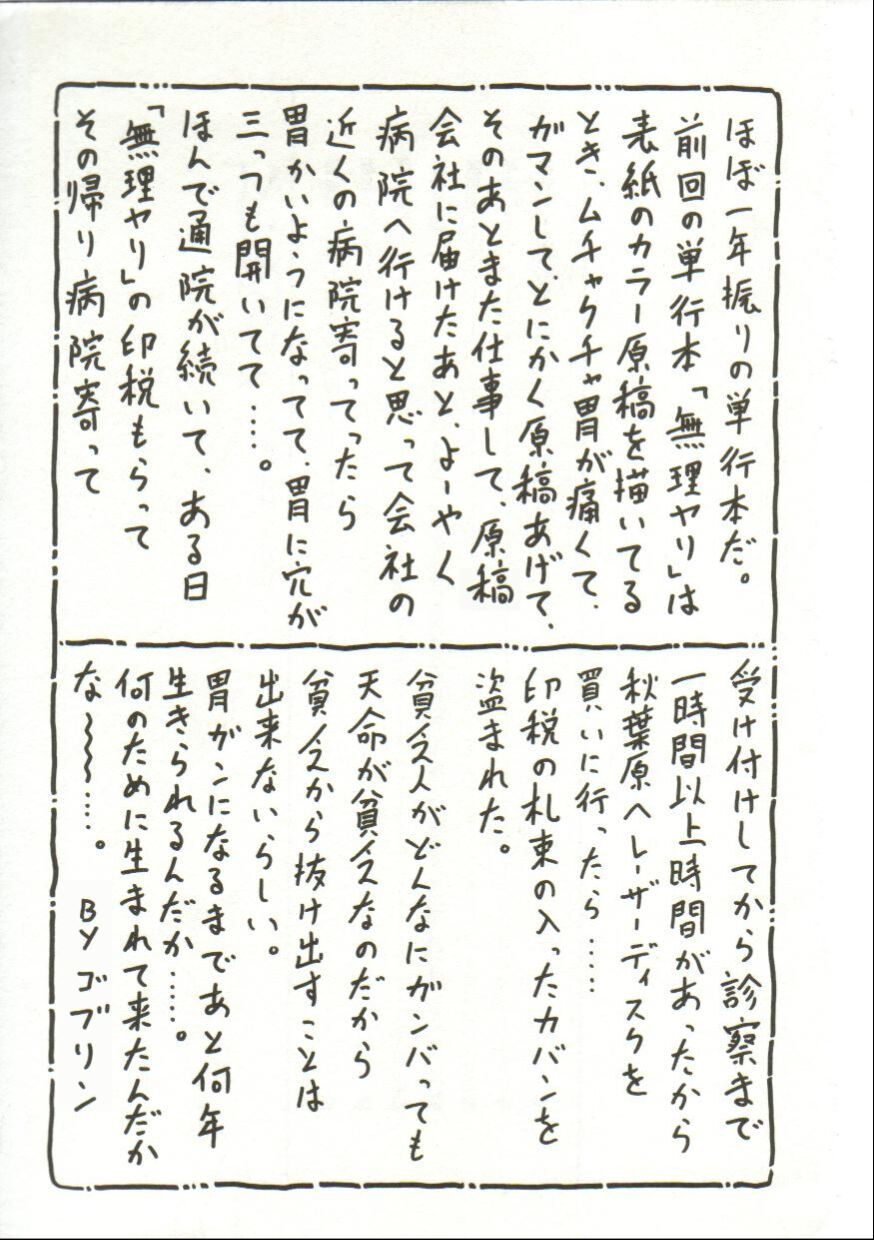 ほぼ一年振りの単行本だ。
前回の単行本「無理ヤリ」は
表紙のカラー原稿を描いてる
とき、ムチャクチャ胃が痛くて、
ガマンして、とにかく原稿あげて、
そのあとまた仕事して、原稿
会社に届けたあと、よーやく
病院へ行けると思って会社の
近くの病院寄ってったら
胃かいようになってて、胃に穴が
三っつも開いてて……。
ほんで通院が続いて、ある日
「無理ヤリ」の印税もらって
その帰り病院寄って
受け付けしてから診察まで
一時間以上時間があったから
秋葉原へレーザーディスクを
買いに行ったら……
印税の札束の入ったカバンを
盗まれた。
貧乏人がどんなにガンバっても
天命が貧乏なのだから
貧乏から抜け出すことは
出来ないらしい。
胃ガンになるまであと何年
生きられるんだか……。
何のために生まれて来たんだか
な〜〜〜……。 BYゴブリン